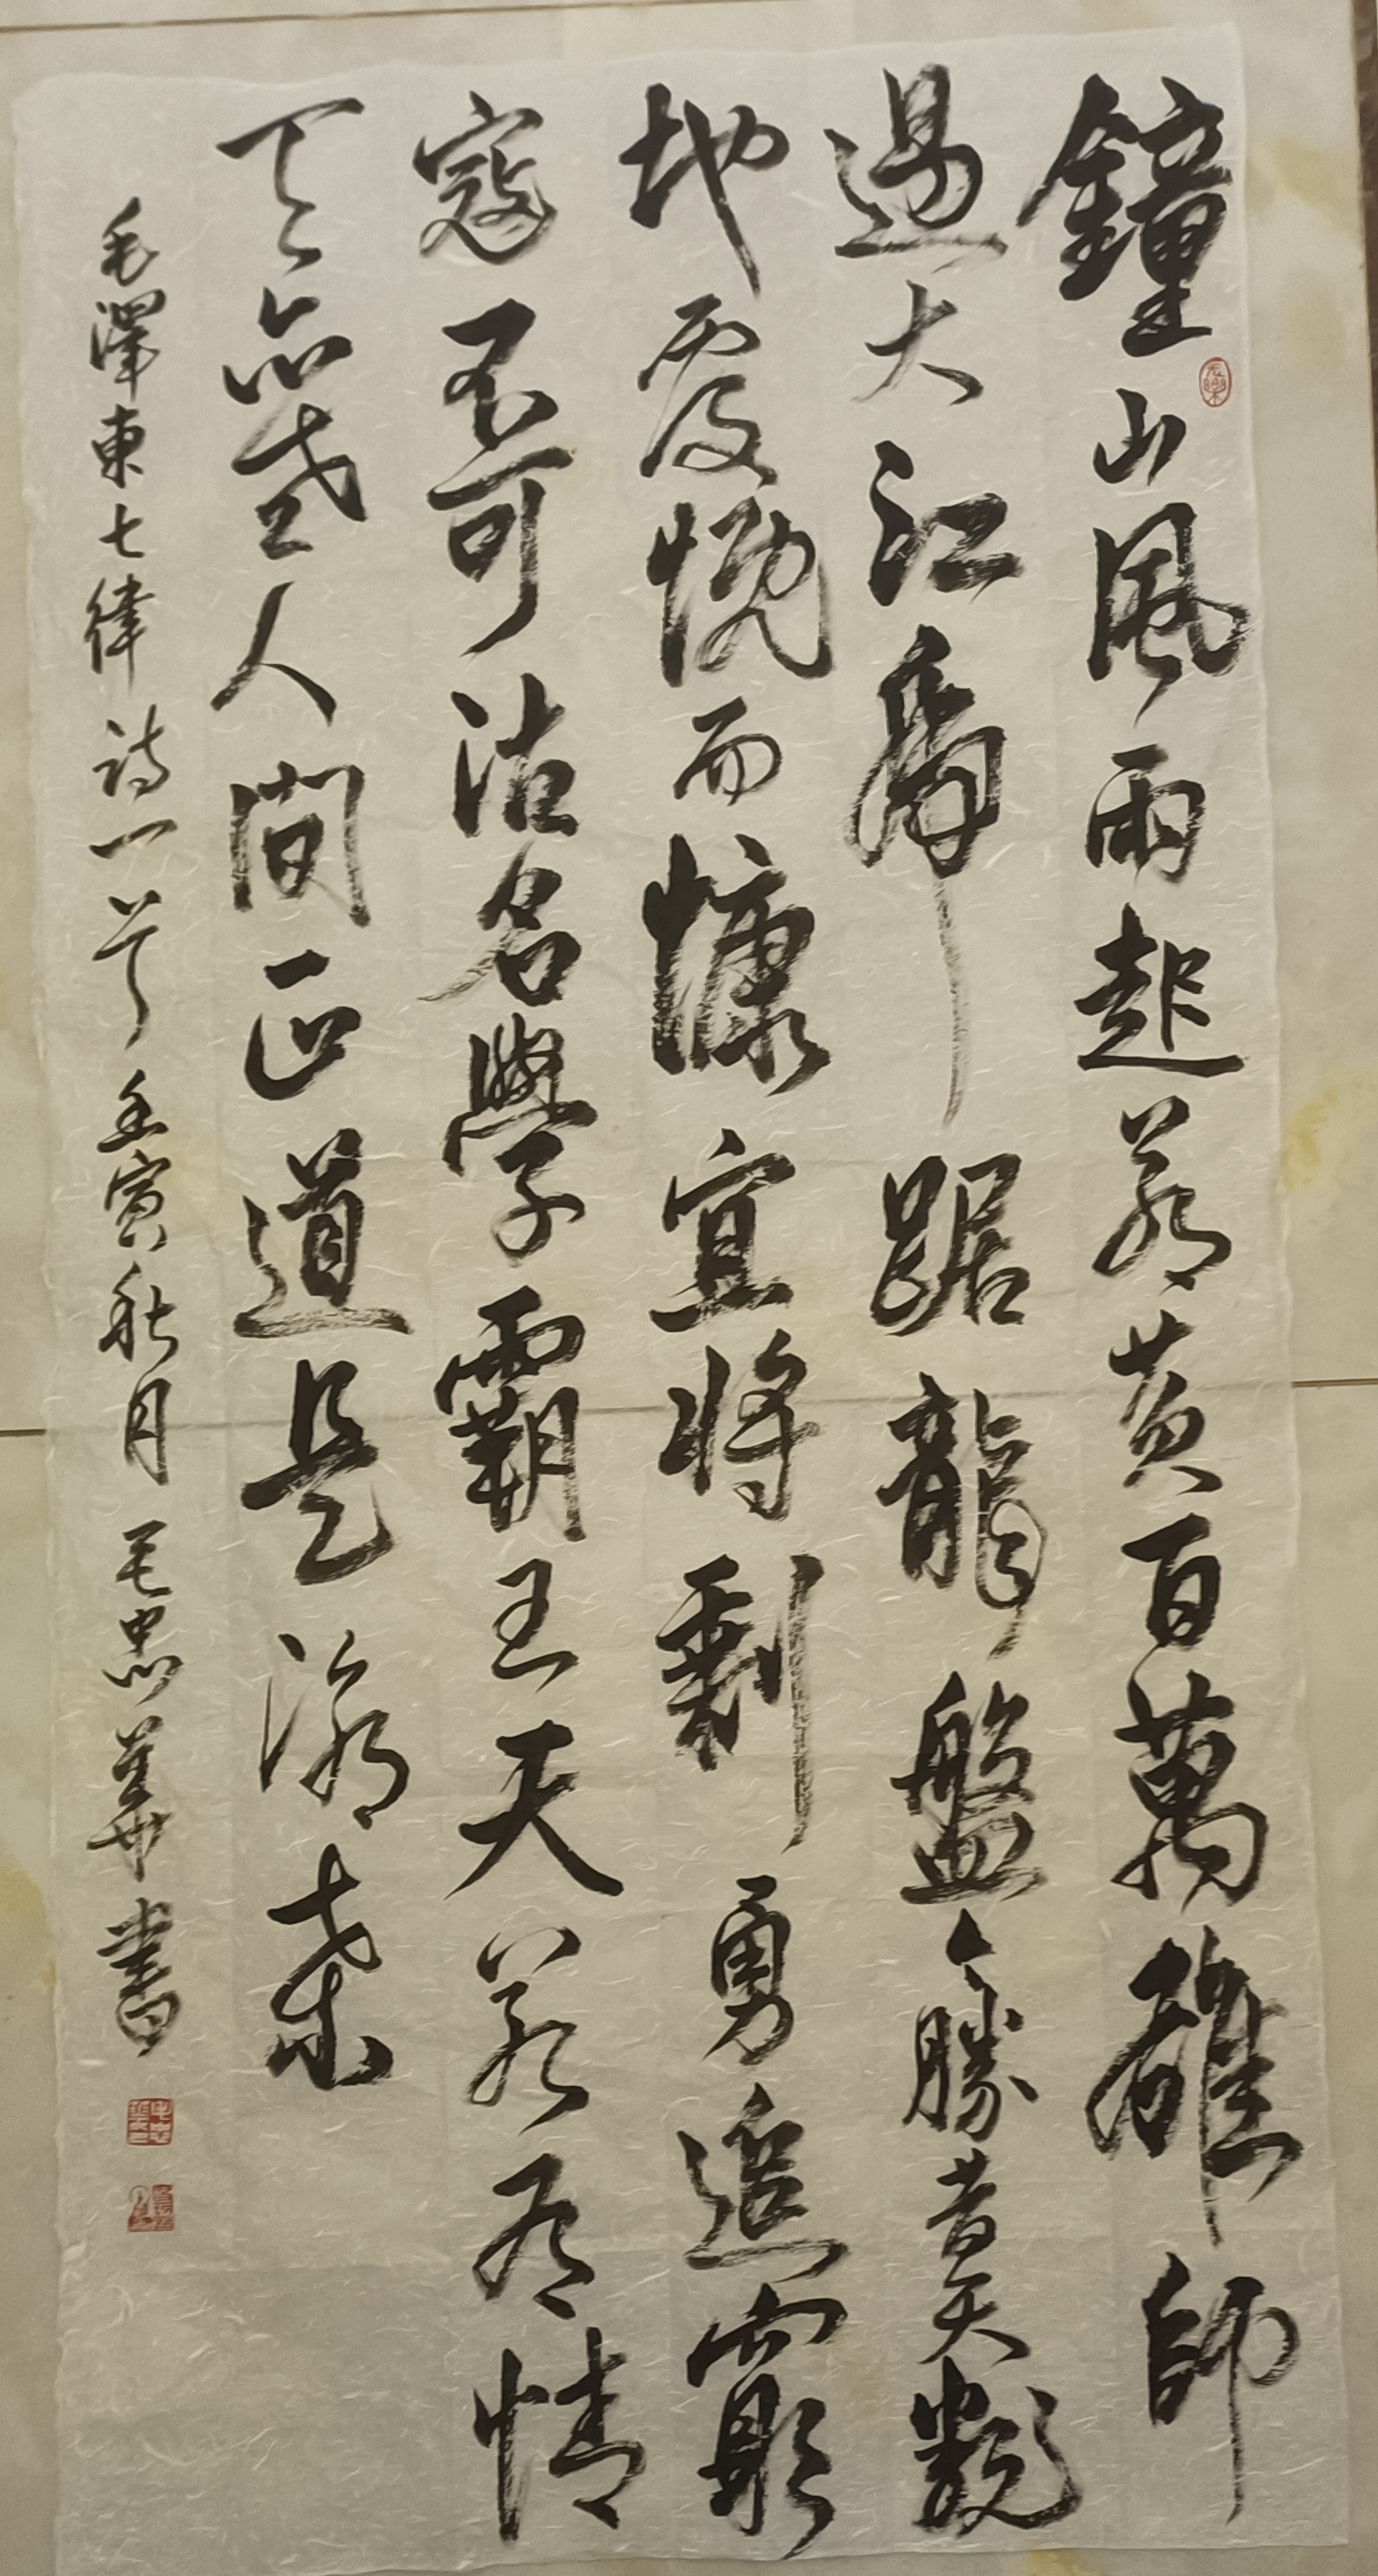 鐘山風雨起蒼黃百萬雄師
過大江虎踞龍盤今勝昔天翻
地覆慨而慷宜將剩勇追窮
寇不可沽名學霸王天若有情
天亦老人間正道是滄桑
毛澤東七律詩一首壬寅秋月毛忠華書